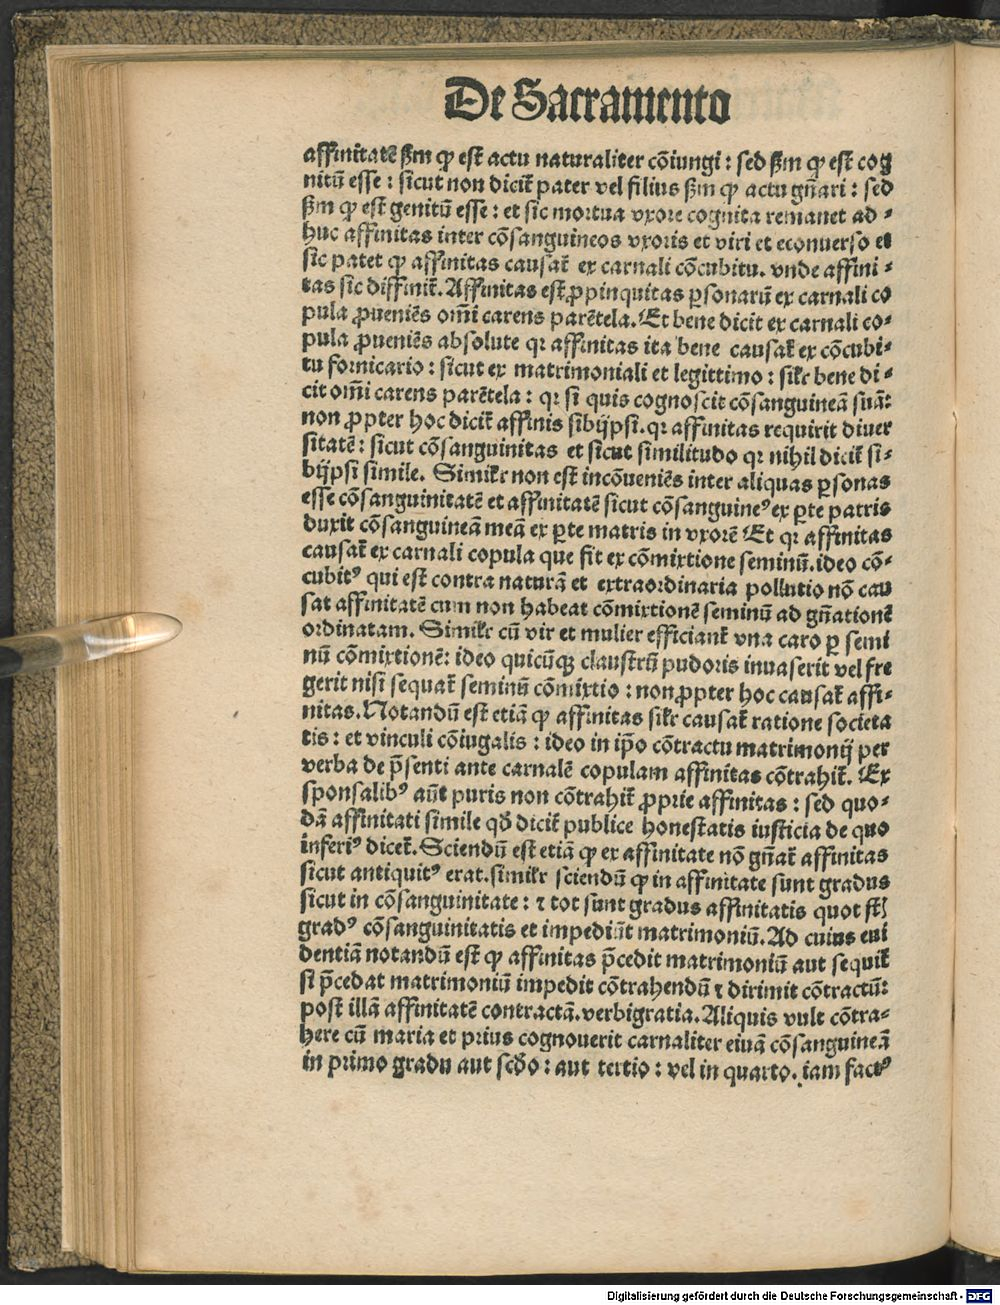 De Sacramento
affinitatē ẜm ꝙ est actu naturaliter cōiungi : sed ẜm ꝙ est cog
nitū esse : sicut non dicit̄ pater vel filius ẜm ꝙ actu gn̄ari : sed
ẜm ꝙ est genitū esse : et sic mortua vxore cognita remanet ad⸗
huc affinitas inter cōsanguineos vxoris et viri et econuerso et
sic patet ꝙ affinitas causat̄ ex carnali cōcubitu. vnde affini⸗
tas sic diffinit̄. Affinitas est ꝓpinquitas ꝑsonarū ex carnali co
pula ꝓueniēs om̄i carens parētela. Et bene dicit ex carnali co⸗
pula ꝓueniēs absolute qꝛ affinitas ita bene causat̄ ex cōcubi⸗
tu fornicario : sicut ex matrimoniali et legittimo : silr bene di⸗
cit om̄i carens parētela : qꝛ si quis cognoscit cōsanguineā suā:
non ꝓpter hoc dicit̄ affinis sibijpsi. qꝛ affinitas requirit diuer
sitatē : sicut cōsanguinitas et sicut similitudo qꝛ nihil dicit̄ si⸗
bijpsi simile. Similr non est incōueniēs inter aliquas ꝑsonas
esse cōsanguinitatē et affinitatē sicut cōsanguineꝰ ex ꝑte patris
duxit cōsanguineā meā ex ꝑte matris in vxorē Et qꝛ affinitas
causat̄ ex carnali copula que fit ex cōmixtione seminū. ideo cō⸗
cubitꝰ qui est contra naturā et extraordinaria pollutio nō cau
sat affinitatē cum non habeat cōmixtionē seminū ad gn̄ationē
ordinatam. Similr cū vir et mulier efficiant̄ vna caro ꝑ semi
nū cōmixtionē: ideo quicūqꝫ claustrū pudoris inuaserit vel fre
gerit nisi sequat̄ seminū cōmixtio : non ꝓpter hoc causat̄ affi⸗
nitas. Notandū est etiā ꝙ affinitas silr causat̄ ratione societa
tis : et vinculi cōiugalis : ideo in ip̄o cōtractu matrimonij per
verba de p̄senti ante carnalē copulam affinitas cōtrahit̄. Ex
sponsalibꝰ aūt puris non cōtrahit̄ ꝓprie affinitas : sed quo⸗
dā affinitati simile qđ dicit̄ publice honestatis iusticia de quo
inferiꝰ dicet̄. Sciendū est etiā ꝙ ex affinitate nō gn̄at̄ affinitas
sicut antiquitꝰ erat. similr sciendū ꝙ in affinitate sunt gradus
sicut in cōsanguinitate : ⁊ tot sunt gradus affinitatis quot st̄
gradꝰ cōsanguinitatis et impediūt matrimoniū. Ad cuius eui
dentiā notandū est ꝙ affinitas p̄cedit matrimoniū aut sequit̄
si p̄cedat matrimoniū impedit cōtrahendū ⁊ dirimit cōtractū:
post illā affinitatē contractā. verbigratia. Aliquis vult cōtra⸗
here cū maria et prius cognouerit carnaliter eiuā cōsanguineā
in primo gradu aut scđo : aut tertio : vel in quarto. iam factꝰ
Digitalisierung gefördert durch die Deutsche Forschungsgemeinschaft - DFG